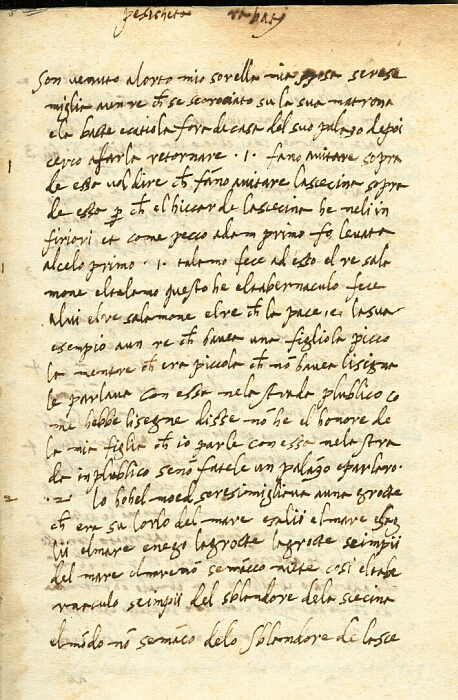 pesicheta rabati
Son venuto alorto mio sorella mia sposa se rese
miglia aun re ch se scorociato su la sua matrona
ela batte ecaciola fora de casa del suo palazo depoi
cerco afarla retornare · I · fano auitare sopra
de essa vol dire ch fano auitare lascecina sopra
de essa p ch el hiccar de lascecina he neli in
firiori et come pecco adam primo fo levata
alcelo primo · I · talamo fece ad esso el re sala
mone eltalamo questo he eltabernaculo fece
alui el re salamone el re ch la pace
esempio aun re ch haueа una figliola picco
la mentre ch era piccola ch no haueа li signa
le parlaua con essa nela strada plublico co
me hebbe li segne disse no he el honore de
la mia figlia ch io parle con essa nela stra
da in plublico seno fatele un palazo eparlaro·
· 2 · lo hohel moed se resimigliaua auna grocte
ch era su lorlo del mare esalii el mare
lii el mare enego lagrocte lagrocte se impii
del mare el mare no se manco niete cosi el tabe
rnaculo se impii del sblandore dela scecina
el modo no se maco delo sblandore de lasce